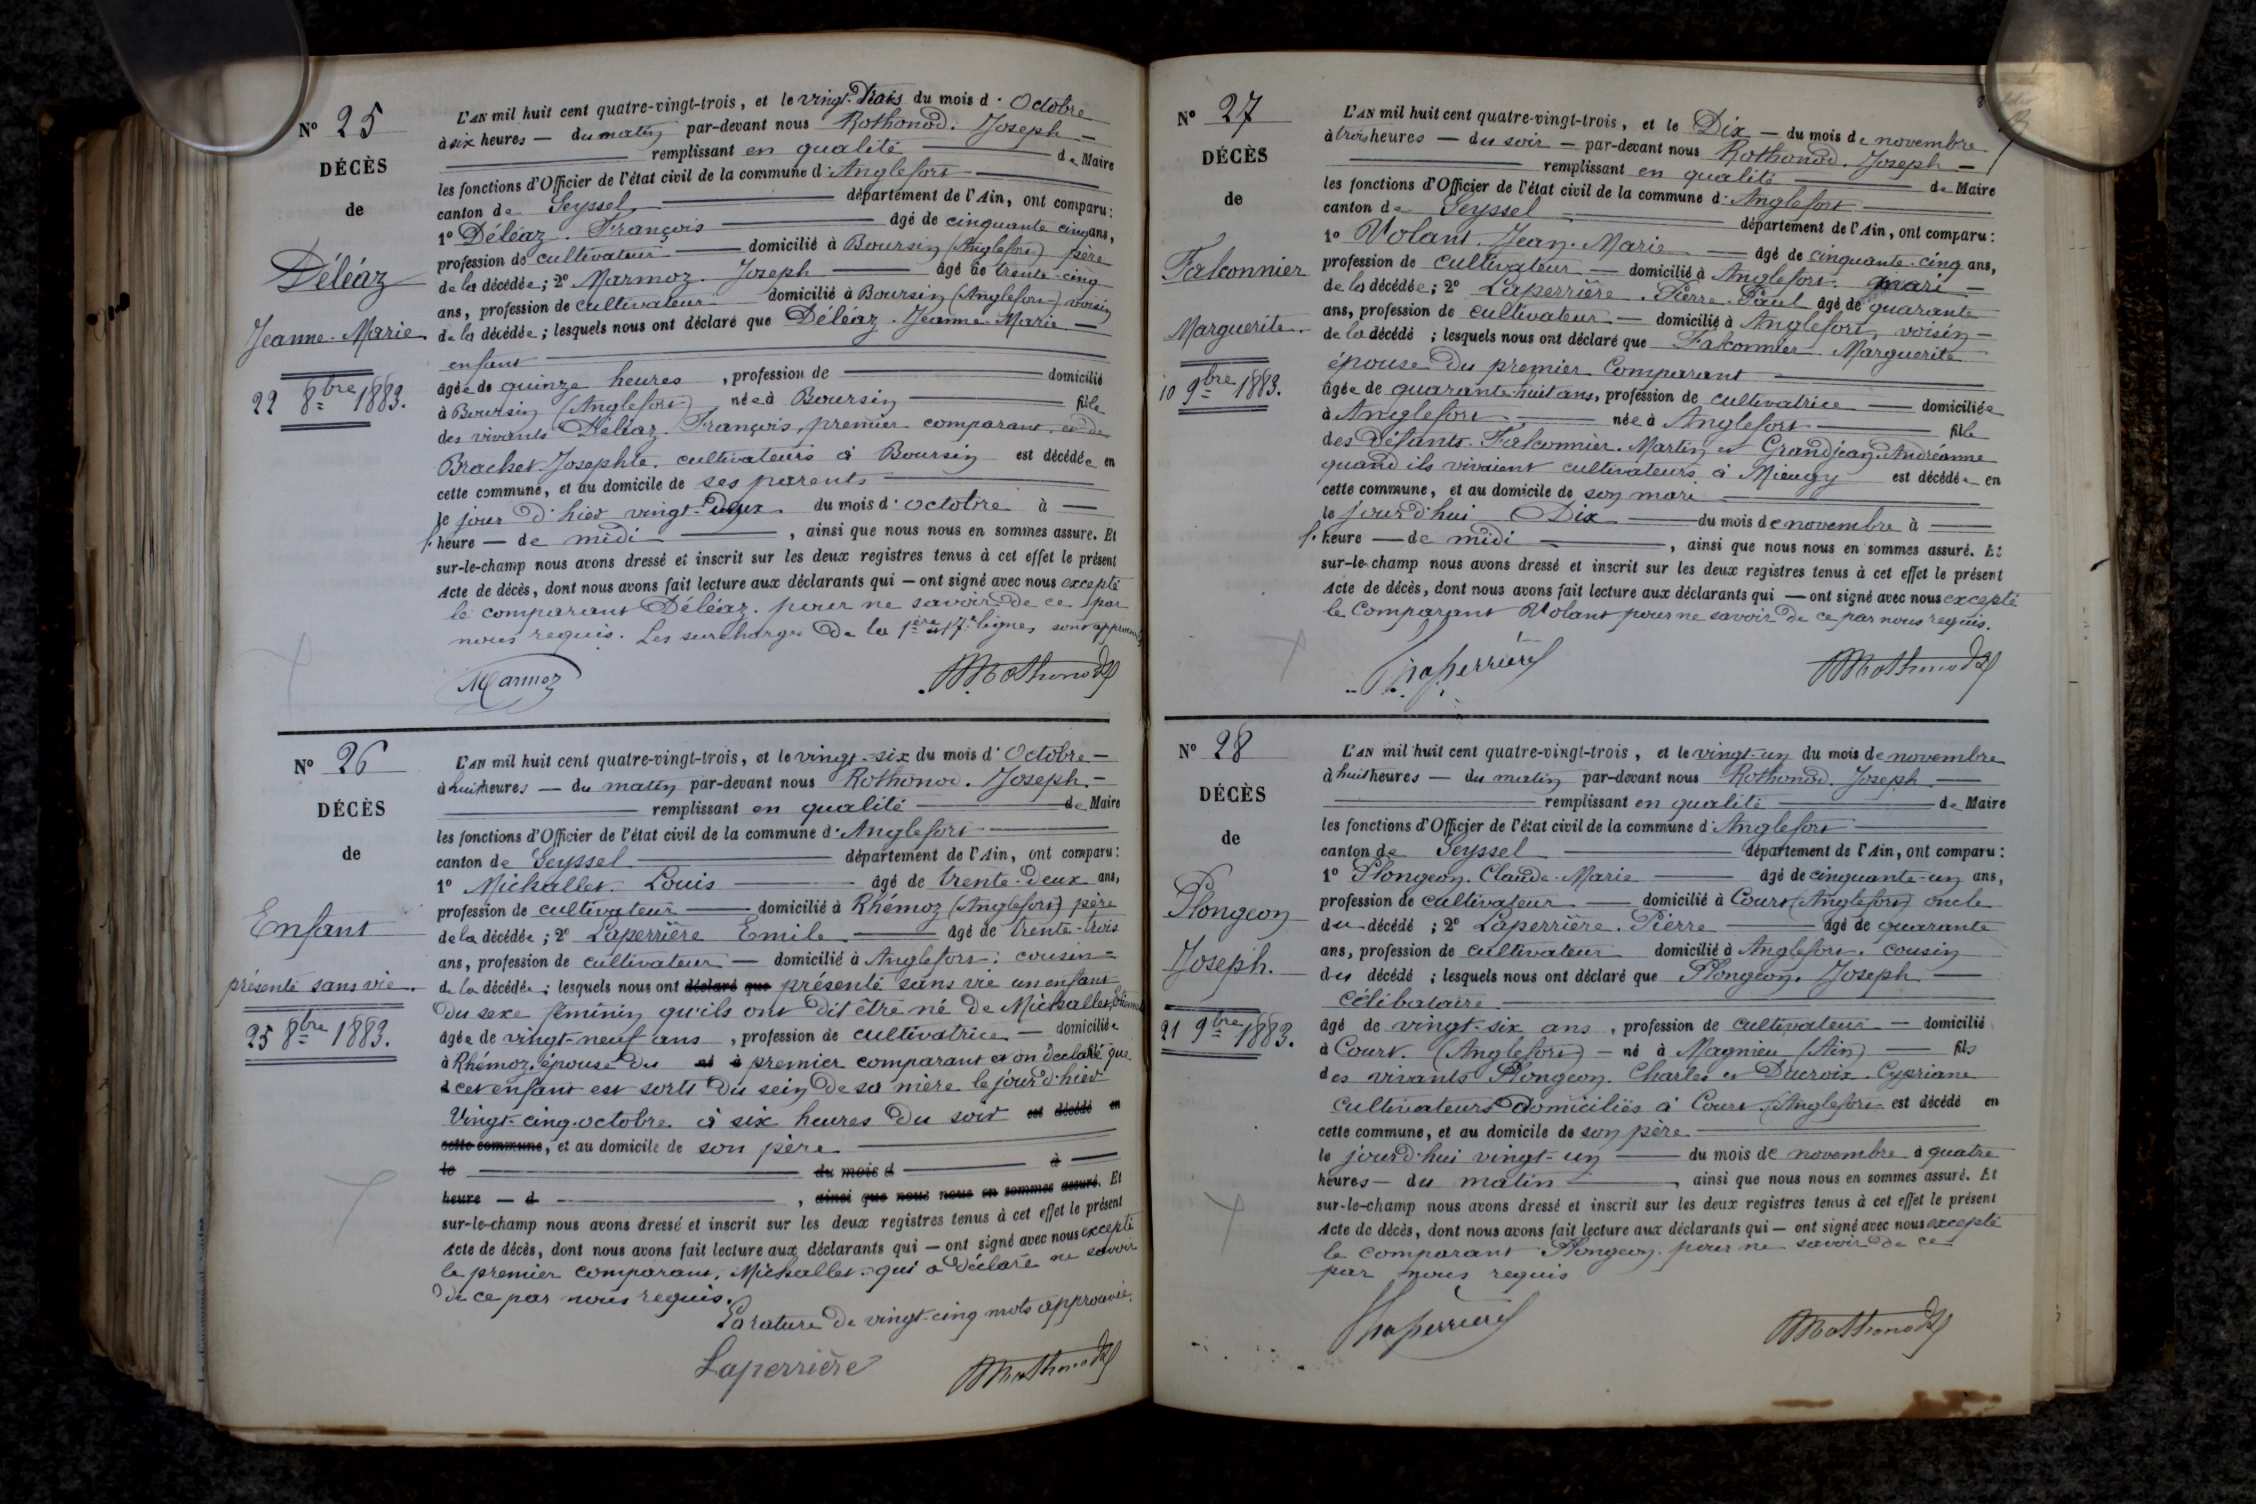 N° 25
DÉCÈS
de
Déléaz
Jeanne-Marie
22 8bre 1883.
L'AN mil huit cent quatre-vingt-trois, et le vingt-trois du mois d'Octobre
à six heures — du matin par-devant nous Rothonod. Joseph —
remplissant en qualité de Maire
les fonctions d'Officier de l'état civil de la commune d'Anglefort
canton de Seyssel département de l'Ain, ont comparu :
1° Déléaz. François âgé de cinquante cinq ans,
profession de cultivateur domicilié à Boursin (Anglefort) père
de la décédée ; 2° Marmoz. Joseph âgé de trente-cinq
ans, profession de cultivateur domicilié à Boursin (Anglefort) voisin
de la décédée ; lesquels nous ont déclaré que Déléaz. Jeanne-Marie —
enfant
âgée de quinze heures, profession de domicilié
à Boursin (Anglefort) née à Boursin fille
des vivants Déléaz. François, premier comparant et de
Brachet Josephte. cultivateurs à Boursin est décédée en
cette commune, et au domicile de ses parents
le jour d'hier vingt-deux du mois d'octobre à —
heure — de midi, ainsi que nous nous en sommes assuré. Et
sur-le-champ nous avons dressé et inscrit sur les deux registres tenus à cet effet le présent
Acte de décès, dont nous avons fait lecture aux déclarants qui — ont signé avec nous excepté
le comparant Déléaz. pour ne savoir de ce par
nous requis. Les surcharges de la 1ère et 17e lignes sont approuvées
Marmoz
Rothonod
N° 26
DÉCÈS
de
Enfant
présenté sans vie.
25 8bre 1883.
L'AN mil huit cent quatre-vingt-trois, et le vingt-six du mois d'Octobre —
à huit heures — du matin par-devant nous Rothonod. Joseph. —
remplissant en qualité de Maire
les fonctions d'Officier de l'état civil de la commune d'Anglefort
canton de Seyssel département de l'Ain, ont comparu :
1° Michallet. Louis âgé de trente-deux ans,
profession de cultivateur domicilié à Rhémoz (Anglefort) père
de la décédée ; 2° Laperrière Emile âgé de trente-trois
ans, profession de cultivateur — domicilié à Anglefort ; cousin
de la décédée ; lesquels nous ont déclaré que présenté sans vie un enfant
du sexe féminin qu'ils ont dit être né de Michallet,
âgée de vingt-neuf ans, profession de cultivatrice — domiciliée
à Rhémoz. épouse du né à premier comparant et on déclaré que
cet enfant est sorti du sein de sa mère le jour d'hier
Vingt-cinq octobre à six heures du soir est décédé en
cette commune, et au domicile de son père
le du mois d à —
heure — d, ainsi que nous nous en sommes assuré. Et
sur-le-champ nous avons dressé et inscrit sur les deux registres tenus à cet effet le présent
Acte de décès, dont nous avons fait lecture aux déclarants qui — ont signé avec nous excepté
le premier comparant, Michallet. qui a déclaré ne savoir
de ce par nous requis.
La rature de vingt-cinq mots approuvée.
Laperrière
Rothonod
N° 27
DÉCÈS
de
Falconnier
Marguerite.
10 9bre 1883.
L'AN mil huit cent quatre-vingt-trois, et le Dix — du mois de novembre
à trois heures — du soir — par-devant nous Rothonod. Joseph —
remplissant en qualité de Maire
les fonctions d'Officier de l'état civil de la commune d'Anglefort
canton de Seyssel département de l'Ain, ont comparu :
1° Volant. Jean-Marie âgé de cinquante-cinq ans,
profession de cultivateur — domicilié à Anglefort. mari —
de la décédée ; 2° Laperrière. Pierre-Paul âgé de quarante
ans, profession de cultivateur — domicilié à Anglefort, voisin —
de la décédé ; lesquels nous ont déclaré que Falconnier Marguerite
épouse du premier Comparant
âgée de quarante-huit ans, profession de cultivatrice — domiciliée
à Anglefort née à Anglefort fille
des défunts. Falconnier. Martin et Grandjean Andréanne
quand ils vivaient cultivateurs à Mieugy est décédée en
cette commune, et au domicile de son mari
le jourd'hui Dix du mois de novembre à
heure — de midi, ainsi que nous nous en sommes assuré. Et
sur-le-champ nous avons dressé et inscrit sur les deux registres tenus à cet effet le présent
Acte de décès, dont nous avons fait lecture aux déclarants qui — ont signé avec nous excepté
le Comparant Volant pour ne savoir de ce par nous requis.
Laperrière
Rothonod
N° 28
DÉCÈS
de
Plongeon
Joseph.
21 9bre 1883.
L'AN mil huit cent quatre-vingt-trois, et le vingt-un du mois de novembre
à huit heures — du matin par-devant nous Rothonod. Joseph —
remplissant en qualité de Maire
les fonctions d'Officier de l'état civil de la commune d'Anglefort
canton de Seyssel département de l'Ain, ont comparu :
1° Plongeon. Claude-Marie âgé de cinquante-un ans,
profession de cultivateur — domicilié à Court (Anglefort) oncle
du décédé ; 2° Laperrière. Pierre âgé de quarante
ans, profession de cultivateur domicilié à Anglefort. cousin
du décédé ; lesquels nous ont déclaré que Plongeon, Joseph —
célibataire
âgé de vingt-six ans, profession de cultivateur — domicilié
à Court. (Anglefort) — né à Magnieu (Ain) — fils
des vivants Plongeon. Charles et Ducroix. Cypriane
cultivateurs domiciliés à Court (Anglefort) est décédé en
cette commune, et au domicile de son père
le jourd'hui vingt-un du mois de novembre à quatre
heures — du matin, ainsi que nous nous en sommes assuré. Et
sur-le-champ nous avons dressé et inscrit sur les deux registres tenus à cet effet le présent
Acte de décès, dont nous avons fait lecture aux déclarants qui — ont signé avec nous excepté
le comparant Plongeon. pour ne savoir de ce
par nous requis
Laperrière
Rothonod